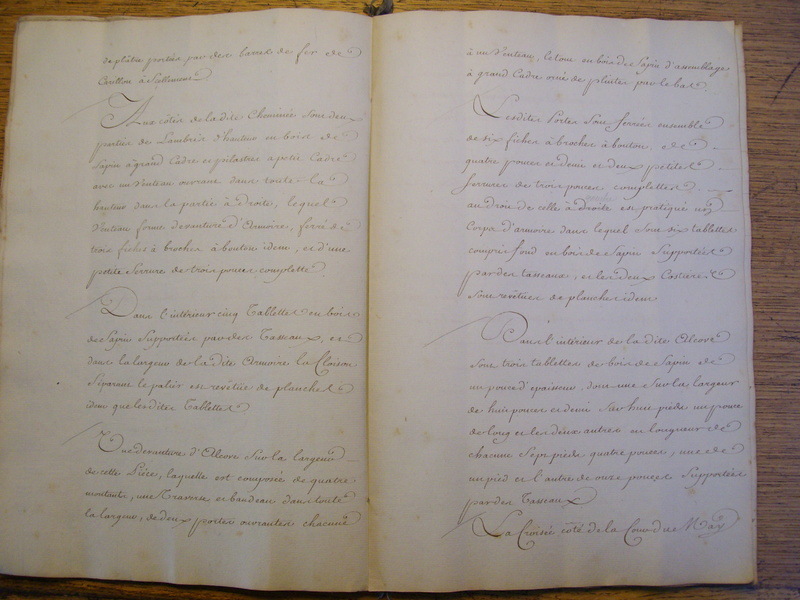 de plâtre portée par des barres de fer de
Carillon à Scellement
Aux côtés de la dite Cheminée sont deux
parties de Lambris d'hauteur en bois de
Sapin à grand Cadre et pilastre à petit Cadre
avec un Venteau ouvrant dans toute la
hauteur dans la partie à droite, lequel
Venteau forme devanture d'Armoire, ferré de
trois fiches à broches à bouton idem, et d'une
petite Serrure de trois pouces complette
Dans l'intérieur cinq Tablettes en bois
de Sapin Supportées par des Tasseaux, et
dans la largeur de la dite Armoire la Cloison
Séparant le palier est revêtue de planches
idem que les dites Tablettes
Une devanture d'Alcove Sur la largeur
de cette Pièce, laquelle est composée de quatre
montants, une Traverse et bandeau dans toute
la largeur, de deux portes ouvrantes chacune
à un Venteau, le tout en bois de Sapin d'assemblage
à grand Cadre orné de plintes par le bas
Lesdites Portes Sont ferrées ensemble
de six fiches à broches à bouton, de
quatre pouces et demie et deux petites
Serrures de trois pouces complettes
au droit de celle à droite est pratiqué un
Corps d'armoire dans lequel Sont six tablettes
compris fond en bois de Sapin Supportées
par des tasseaux, et les deux Costières
Sont revêtues de planches idem
Dans l'intérieur de la dite Alcove
Sont trois tablettes de bois de Sapin de
un pouce d'epaisseur, dont une Sur la largeur
de huit pouces et demie Sur huit pieds un pouce
de long et les deux autres en longueur de
chacune Sept pieds quatre pouces, une de
un pied et l'autre de onze pouces Supportées
par des Tasseaux
La Croisée côté de la Cour du May